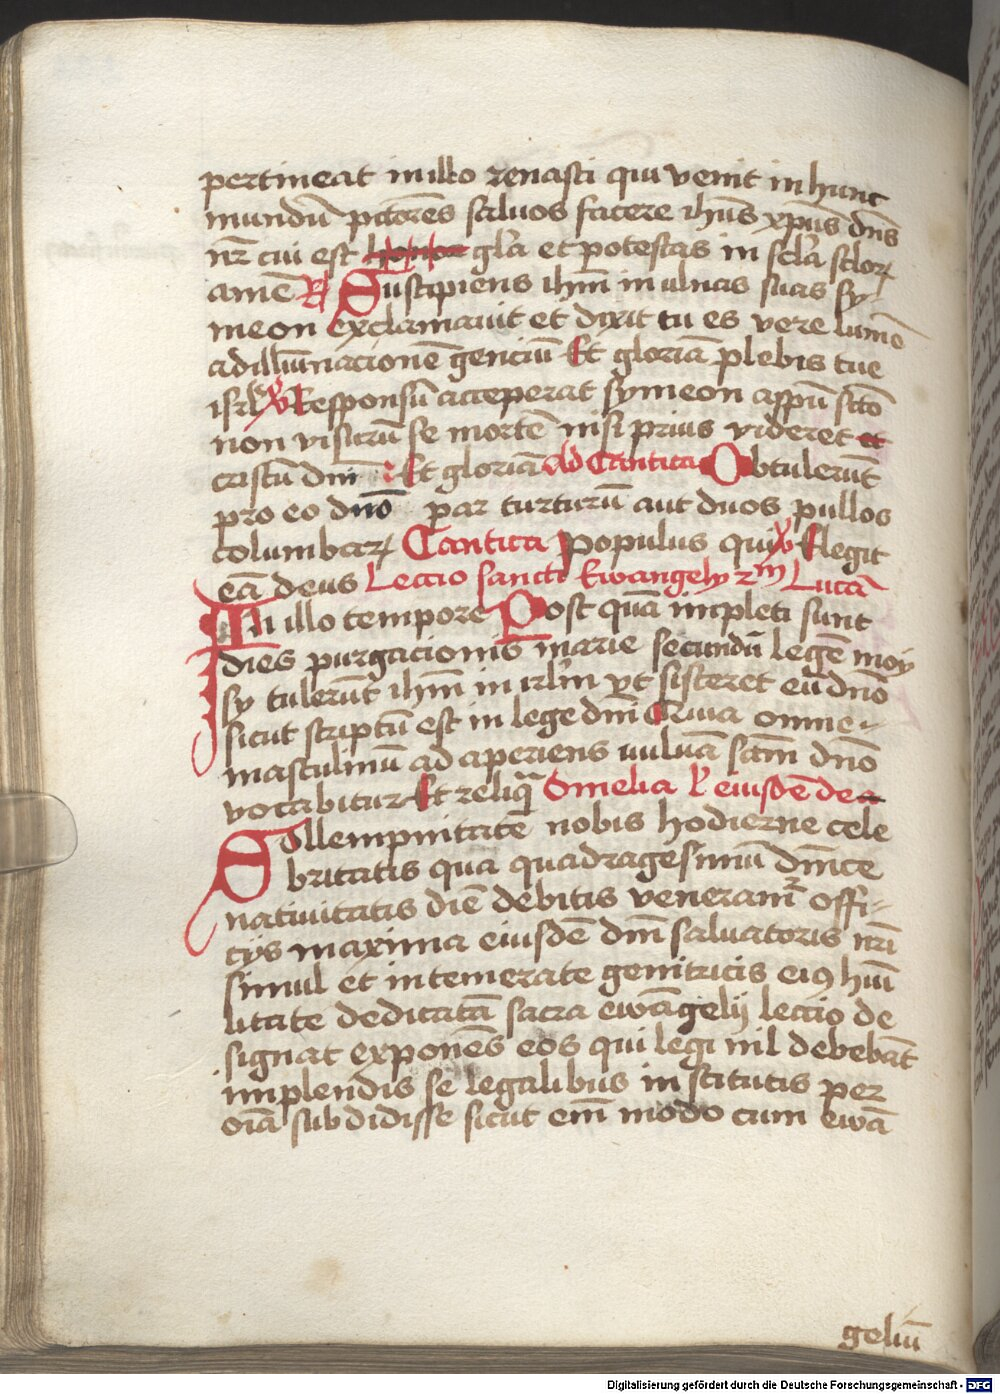 pertineat in illo renasci qui venit in hunc
mundū pctōres saluos facere ihūs xpūs dn̄s
nr̄ cui est honor gl̄a et potestas in scl̄a sclor̄
amē R Suscipiens ihm̄ in ulnas suas sy-
meon exclamauit et dixit tu es vere lumē
ad illuīnacionē genciū Et gloriā plebis tue
isrl̄ V Responsū acceperat symeon a spū scō
non visurū se mortē nisi prius videret et
cristū dn̄i Et gloriā Ad Cantica Obtulerūt
pro eo dn̄o par turturū aut duos pullos
columbar̄ Cantica Populus qui V Elegit
eā deus Leccio sancti Ewangely 2m Lucā
In illo tempore Post quā impleti sunt
dies purgacionis marie secundū legē moy
sy tulerūt ihm̄ in irl̄m vt sisteret eū dn̄o
sicut scriptū est in lege dn̄i Quia omne-
masculinū ad aperiens uuluā sc̄m dn̄o
vocabitur Et reliq̄ Omelia l' eiusdē de
Sollempnitatē nobis hodierne cele
britatis qua quadragesimū dn̄ice
natiuitatis diē debitis veneram̄ offi-
cys maxima eiusdē dn̄i saluatoris nr̄i
simul et intemerate genitricis ei9 hūi
litate dedicatā sacra ewāgelij leccio de
signat exponēs eos qui legi nil debebāt
implendis se legalibus institutis per
oīa subdidisse sicut em̄ modo cum ewā
geliū
Digitalisierung gefördert durch die Deutsche Forschungsgemeinschaft - DFG